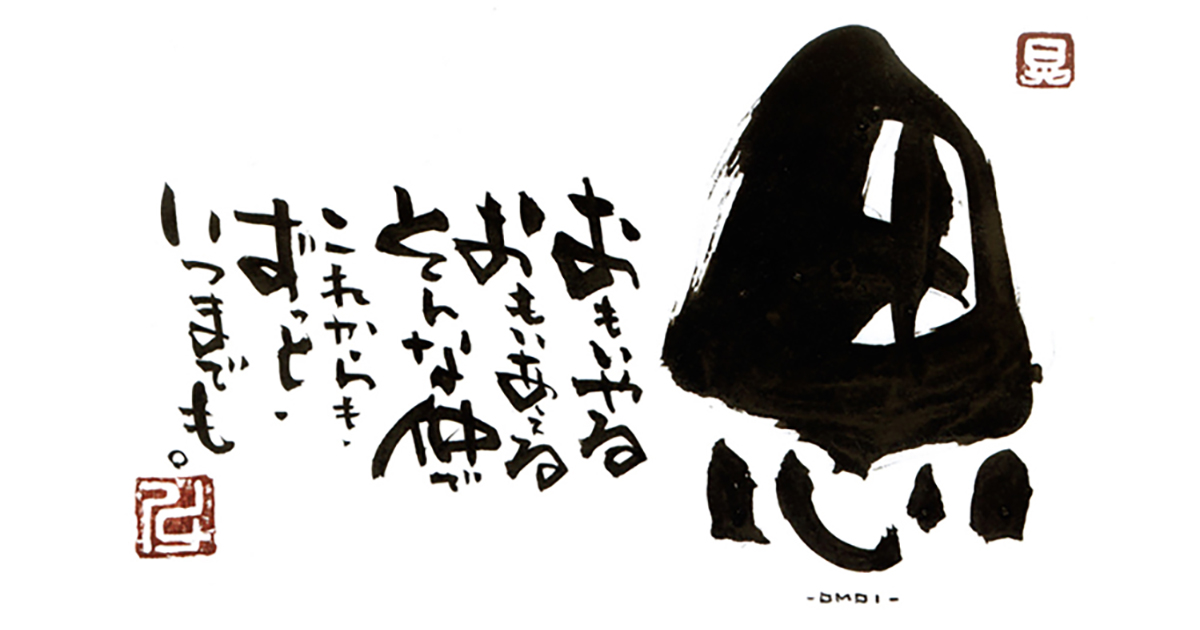 思
-OMOI-
おもいやる
おもいあえる
そんな仲で
これからも、
ずっと、
いつまでも。
晃